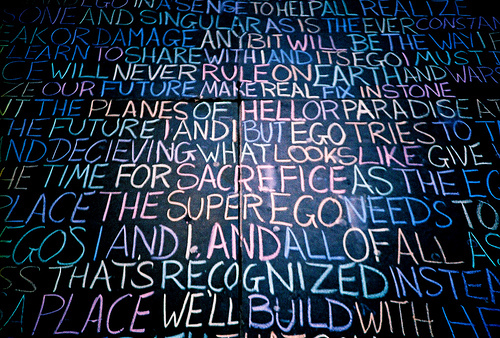 IN A SENSE TO HELP ALL REALIZE
SONE AND SINGULAR AS IS THE EVER CONSTAN
EAK OR DAMAGE ANY BIT WILL BE THE WAY I
LEARN TO SHARE WITH I AND ITS EGO I MUS
CE WILL NEVER RULE ON EARTH AND WAR
ZE OUR FUTURE MAKE REAL FIX IN STONE
IT THE PLANES OF HELL OR PARADISE A
THE FUTURE I AND I BUT EGO TRIES TO T
ND DECIEVING WHAT LOOKS LIKE GIVE
HE TIME FOR SACREFICE AS THE EG
PLACE THE SUPER EGO NEEDS TO
EGOS I AND I. AND ALL OF ALL AS
SS THATS RECOGNIZED INSTEA
A PLACE WE'LL BUILD WITH HE